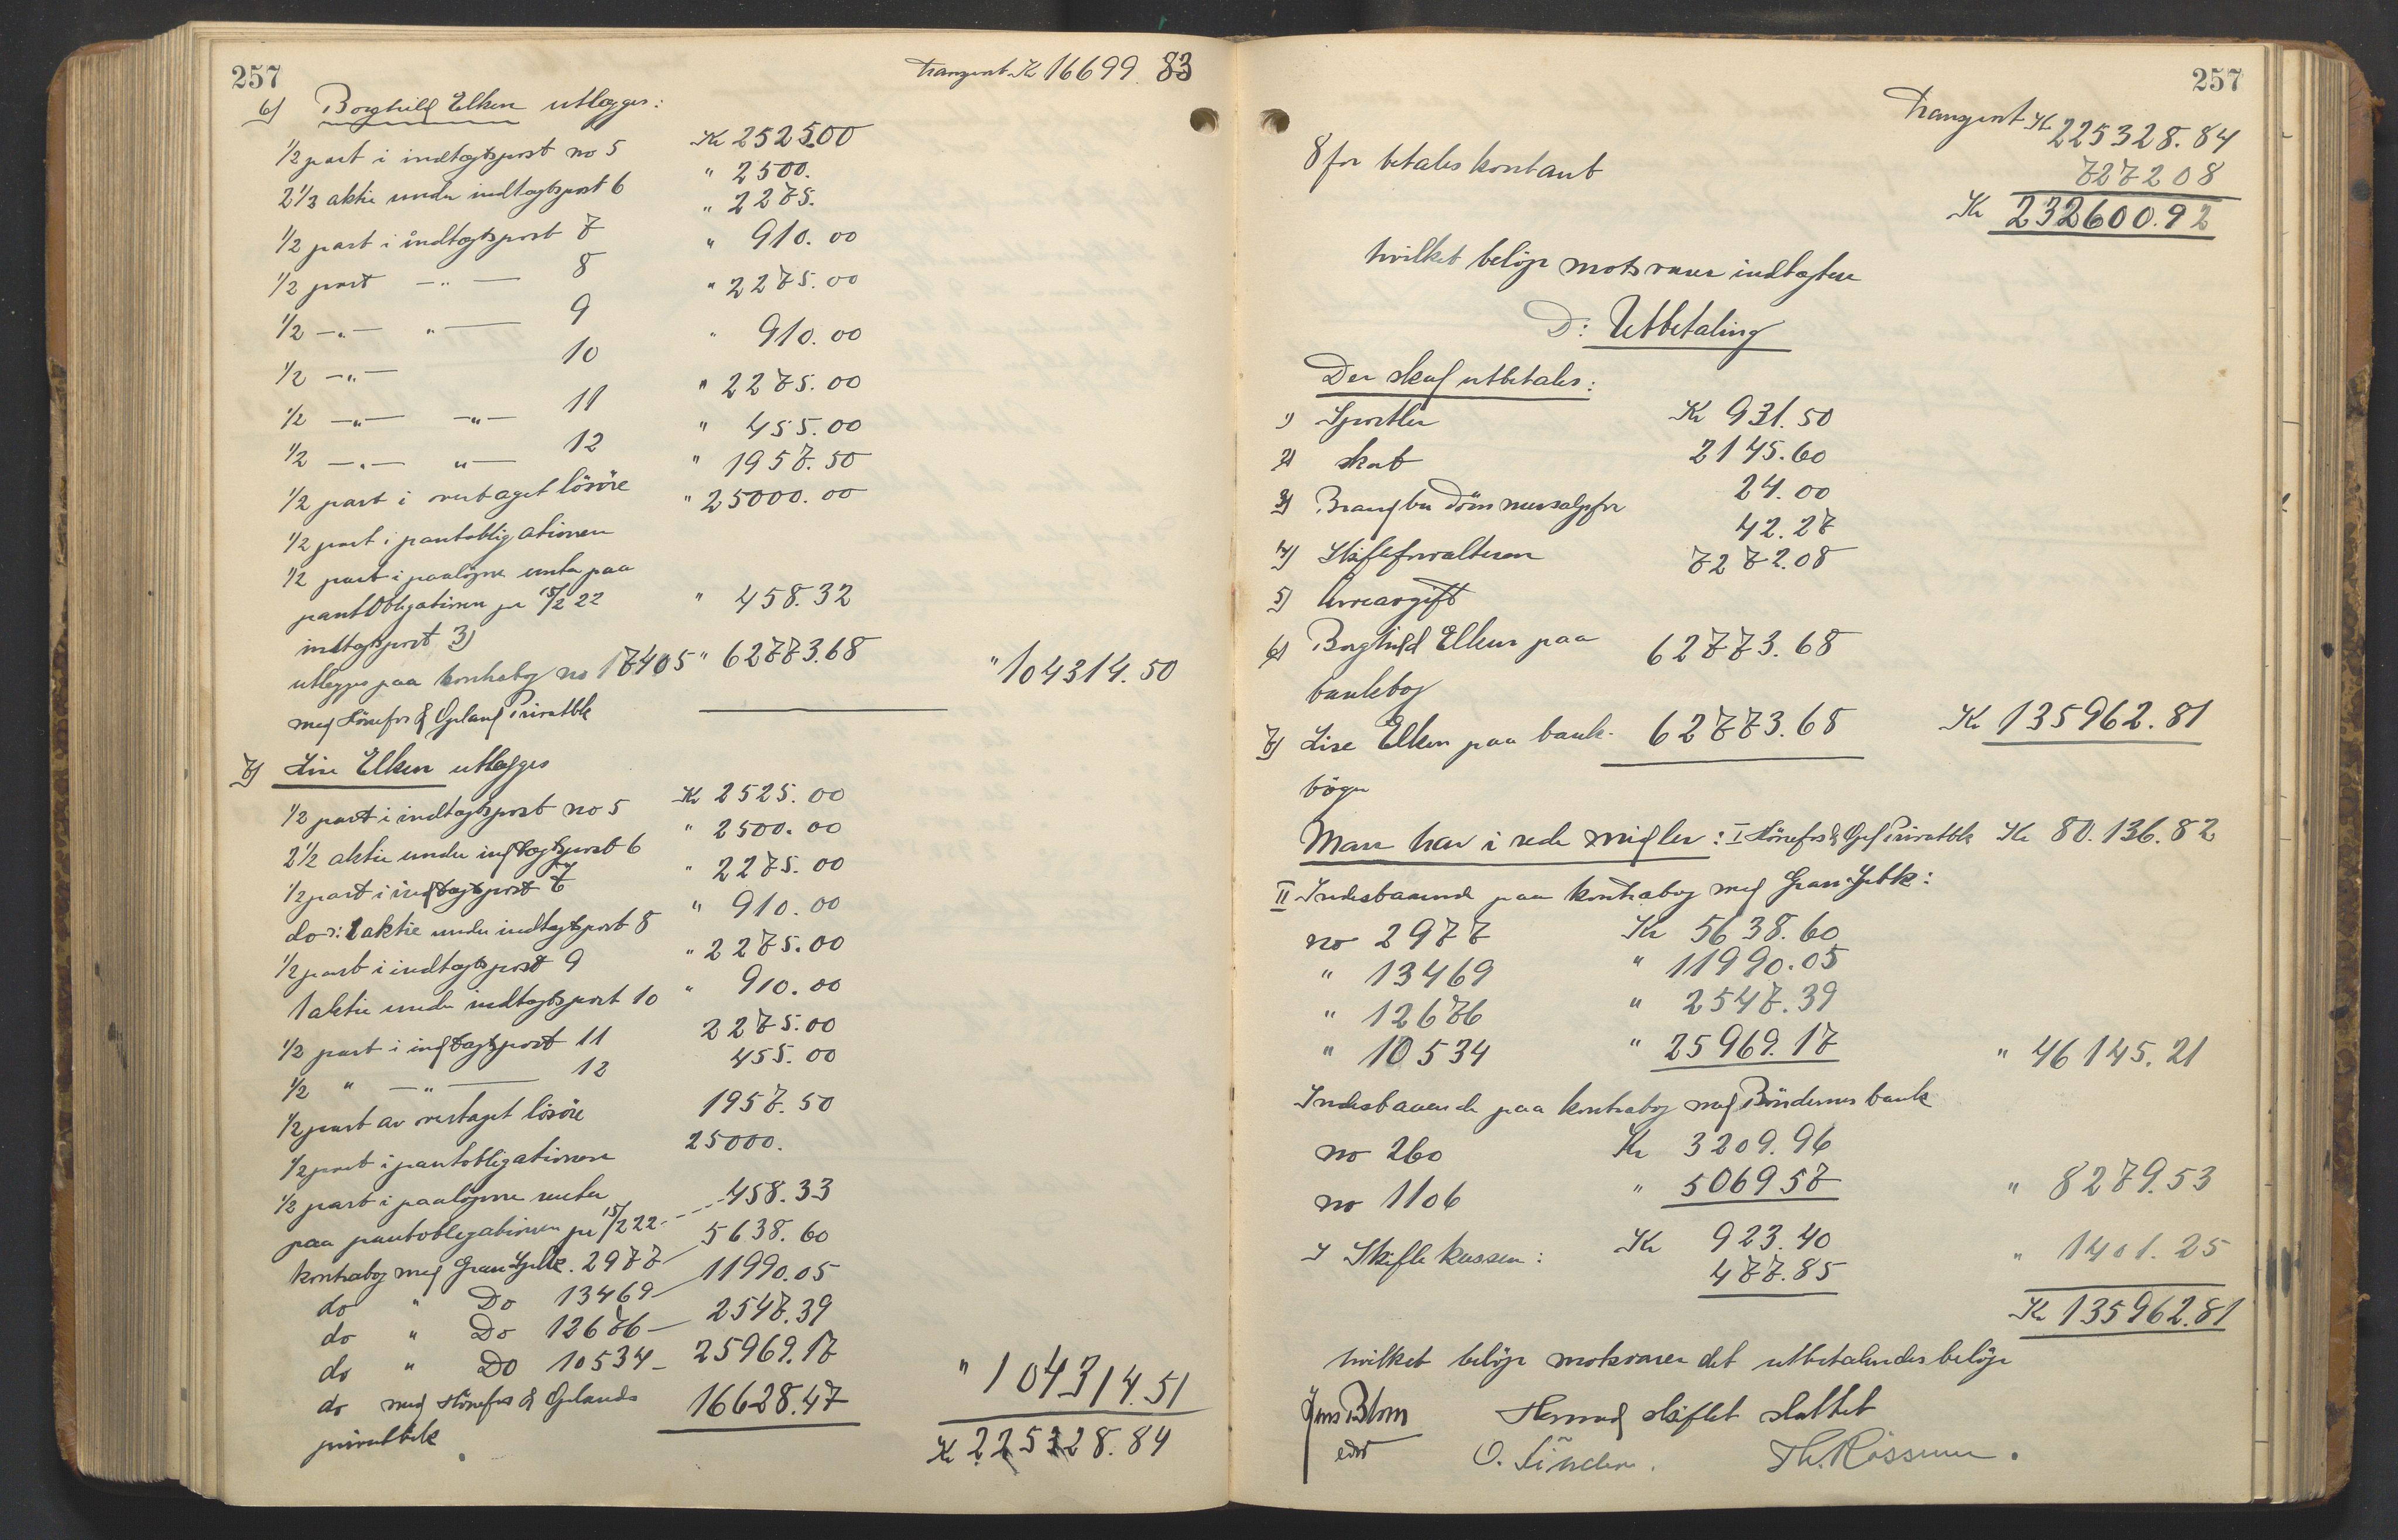 257
Transport Kr 16699.83
6) Borghild Elken utlægges:
1/2 part i indtægtspost no 5 Kr 2525.00
2 1/2 aktie under indtægtspost 6 " 2500.
1/2 part i indtægtspost 7 " 2275.
1/2 part —"— 8 " 910.00
1/2 —"— "— 9 " 2275.00
1/2 —"— 10 " 910.00
1/2 —"— —"— 11 " 2275.00
1/2 —"— "— 12 " 455.00
1/2 part i overtaget lösöre " 1957.50
1/2 part i pantobligationen " 25000.00
1/2 part i paalöpne renter paa
pantobligationen pr 15/2 22
indtægtspost 3) " 458.32
utlegges paa kontrabog no 17405 " 62773.68 " 104314.50
med Hönefos & Opland Privatbk
7) Lise Elken utlægges
1/2 part i indtægtspost no 5 Kr 2525.00
2 1/2 aktie under indtægtspost 6 " 2500.00
1/2 part i indtægtspost 7 " 2275.00
do: 1 aktie under indtægtspost 8 " 910.00
1/2 part i indtægtspost 9 " 2275.00
1 aktie under indtægtspost 10 " 910.00
1/2 part i indtægtspost 11 2275.00
1/2 " —"— 12 455.00
1/2 part av overtaget lösöre 1957.50
1/2 part i pantobligationen 25000.
1/2 part i paalöpne renter
paa pantobligationen pr 15/2 22 458.33
kontrabog med Gran Spbk. 2977 5638.60
do " Do 13469 11990.05
do " Do 12676 2547.39
do " Do 10534 25969.17
do med Hönefos & Oplands 16628.47 " 104314.51
privatbk Kr 225328.84
257
Transport Kr 225328.84
8 for betales kontant 7272 08
Kr 232600.92
hvilket belöp motsvarer indtægtene
D: Utbetaling
Der skal utbetales:
1) Sportler Kr 931.50
2) Skat 2145.60
3) 24.00
4) Skifteforvalteren 42.27
5) Arveavgift 7272.08
6) Borghild Elken paa 62773.68
bankbog
7) Lise Elken paa bank- 62773.68 Kr 135962.81
böger
Man har i rede midler: I Hönefos & Opl Privatbk Kr 80.136.82
II Indestaaende paa kontrabog med Gran Spbk:
no 2977 Kr 5638.60
" 13469 " 11990.05
" 12676 " 2547.39
" 10534 " 25969.17 " 46145.21
Indestaaende paa kontrabog med Böndernes bank
no 260 Kr 3209.96
no 1106 " 5069 57 " 8279.53
I Skifte kassen: Kr 923.40
477.85 " 1401.25
Kr 135962.81
hvilket belöp motsvarer det utbetalendes belöp
Jens Blom Hermed skiftet sluttet
edsv O. Th. Rossum.